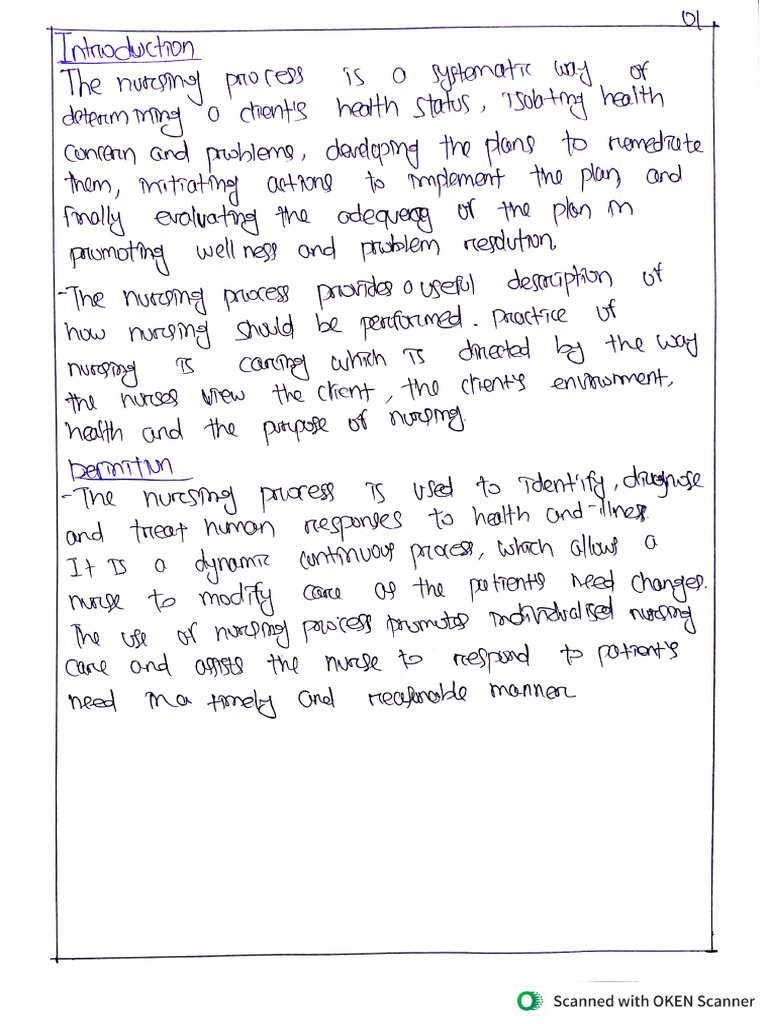 01
Introduction
The nursing process is a systematic way of
determining a client's health status, isolating health
concern and problems, developing the plans to remediate
them, initiating actions to implement the plan, and
finally evaluating the adequacy of the plan in
promoting wellness and problem resolution.
- The nursing process provides a useful description of
how nursing should be performed. Practice of
nursing is caring which is directed by the way
the nurses view the client, the client's environment,
health and the purpose of nursing.
Definition
- The nursing process is used to identify, diagnose
and treat human responses to health and illness.
It is a dynamic continuous process, which allows a
nurse to modify care as the patient's need changes.
The use of nursing process promotes individualised nursing
care and assists the nurse to respond to patient's
need in a timely and reasonable manner
Scanned with OKEN Scanner